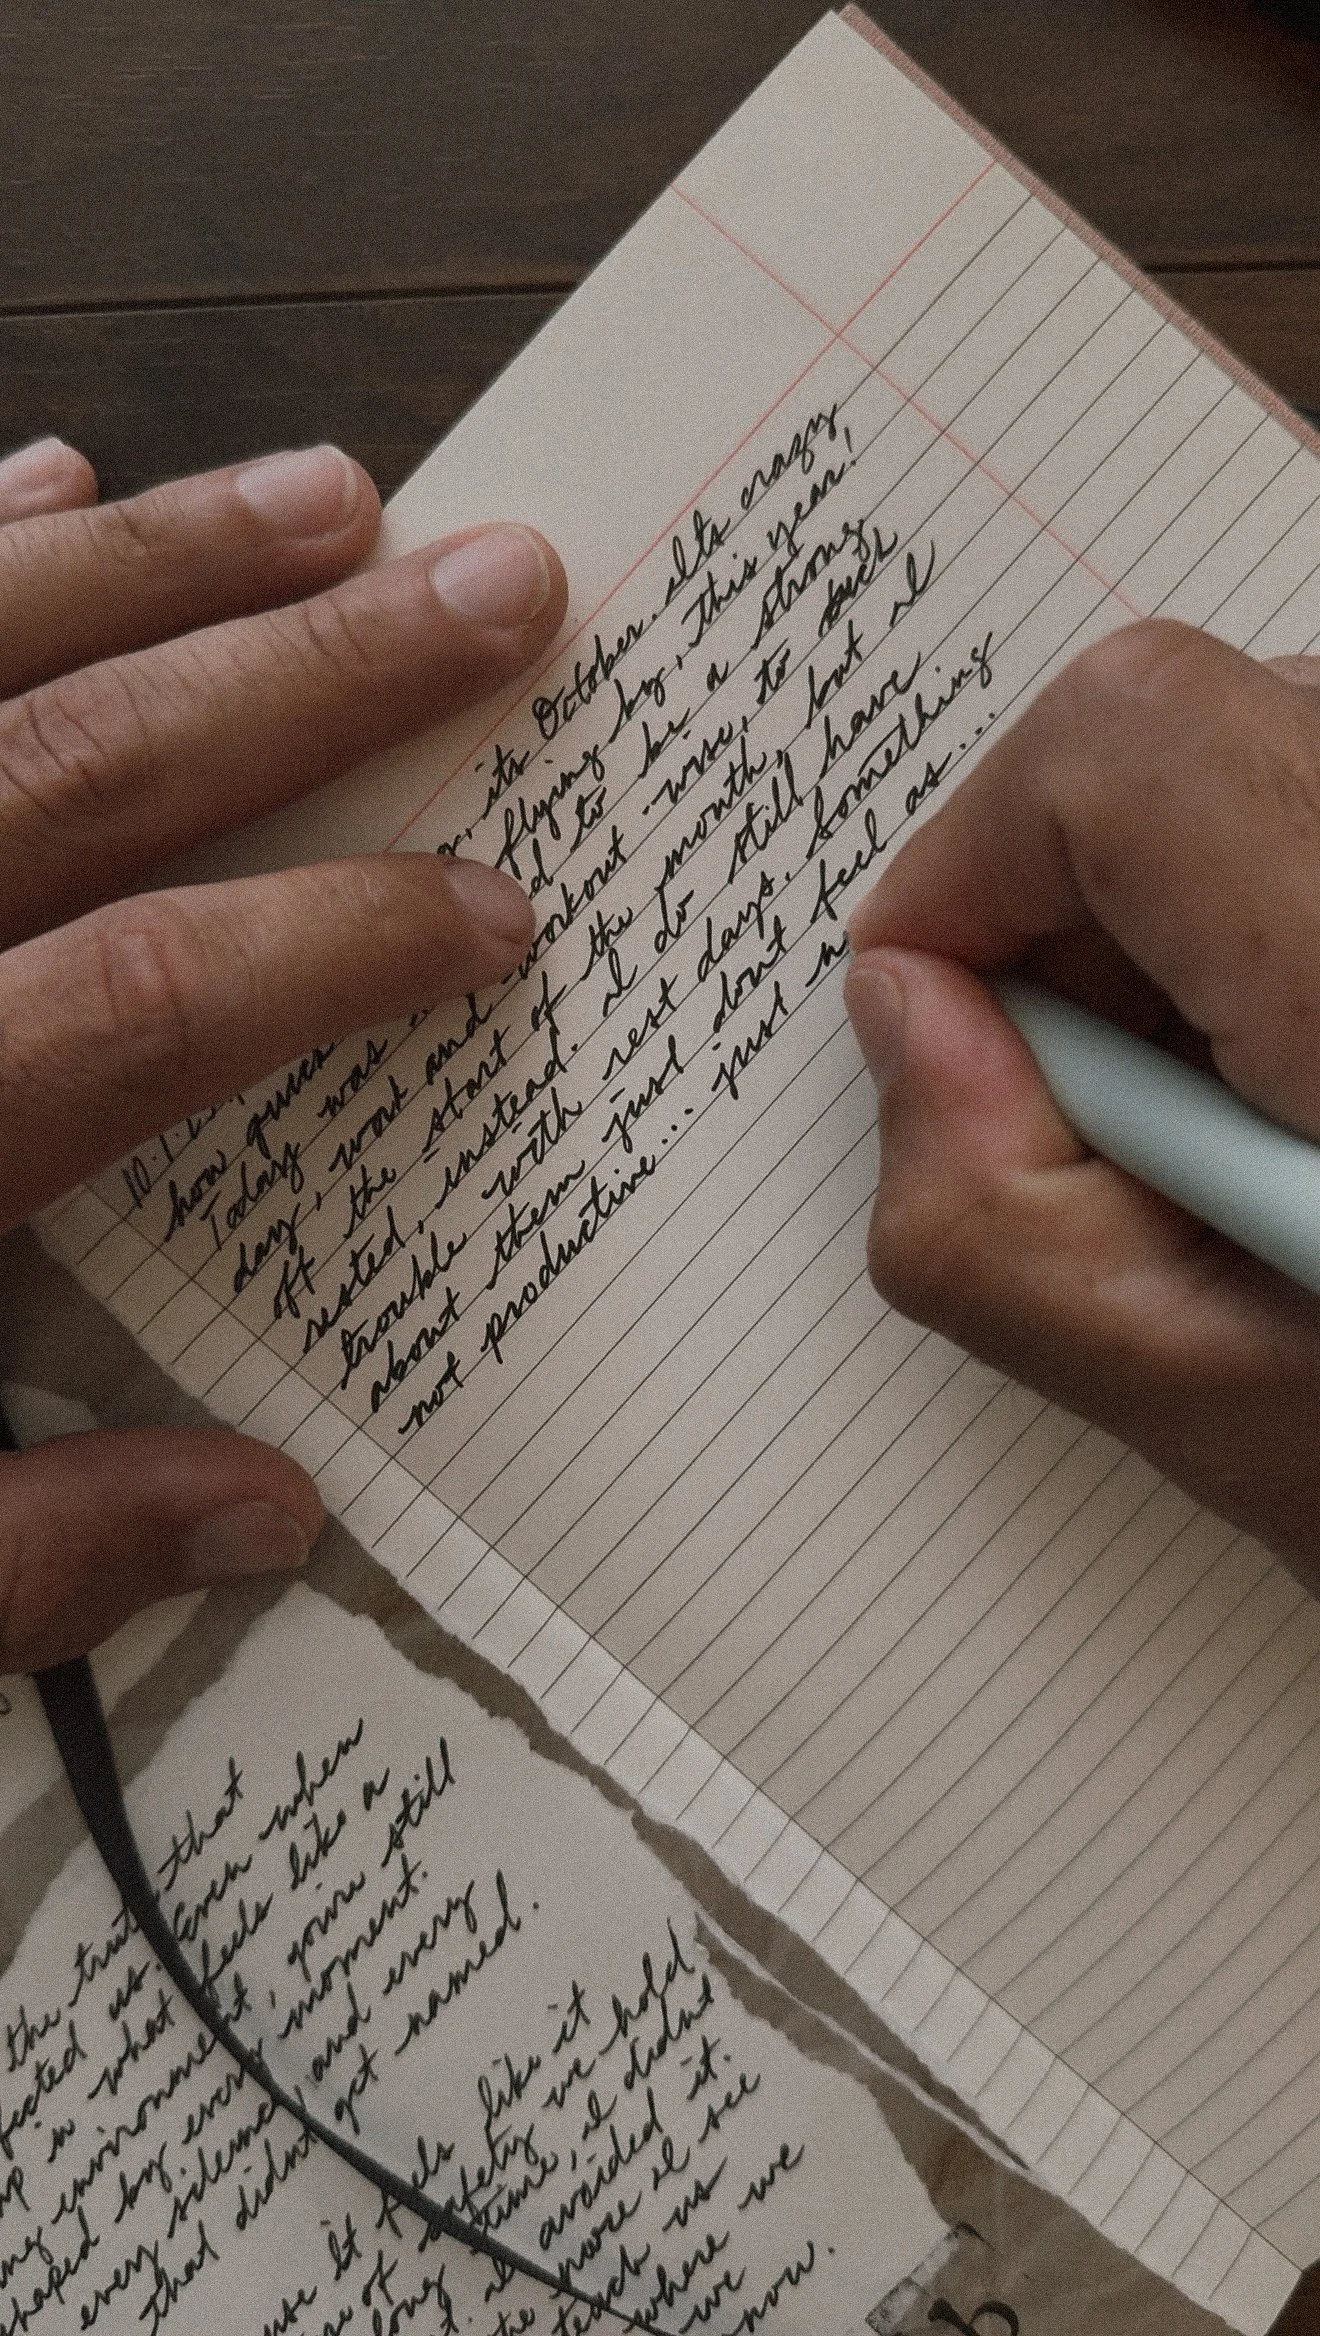 its October. Its crazy
how quick flying by, this year!
Today was to be a strong
day, work and -workout -wise, to kick
off the start of the month, but I
rested, instead. I do still have
trouble with rest days. Something
about them just dont feel as...
not productive... just n
the that
us. Even when
in what feels like a
environment, youre still
by every moment.
every silence, and every
that didnt get named.
it feels like it
of safety we hold
long time, I didnt
avoided it.
more I see
teach us
where we
we
now.